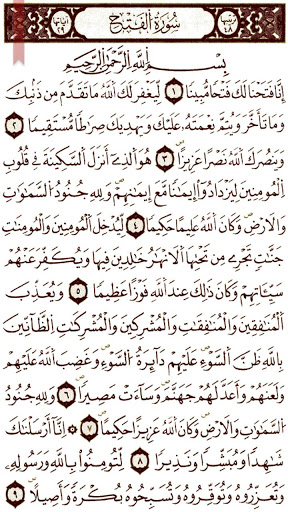 ترتيبها ٤٨ سورة الفتح آياتها ٢٩
بسم الله الرحمن الرحيم
إنا فتحنا لك فتحا مبينا ١ ليغفر لك الله ما تقدم من ذنبك
وما تأخر ويتم نعمته عليك ويهديك صراطا مستقيما ٢
وينصرك الله نصرا عزيزا ٣ هو الذي أنزل السكينة في قلوب
المؤمنين ليزدادوا إيمانا مع إيمانهم ولله جنود السموات
والأرض وكان الله عليما حكيما ٤ ليدخل المؤمنين والمؤمنات
جنات تجري من تحتها الأنهار خالدين فيها ويكفر عنهم
سيئاتهم وكان ذلك عند الله فوزا عظيما ٥ ويعذب
المنافقين والمنافقات والمشركين والمشركات الظانين
بالله ظن السوء عليهم دائرة السوء وغضب الله عليهم
ولعنهم وأعد لهم جهنم وساءت مصيرا ٦ ولله جنود
السموات والأرض وكان الله عزيزا حكيما ٧ إنا أرسلناك
شاهدا ومبشرا ونذيرا ٨ لتؤمنوا بالله ورسوله
وتعزروه وتوقروه وتسبحوه بكرة وأصيلا ٩